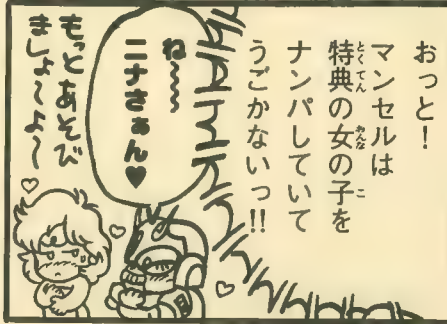 おっと！
マンセルは
特典の女の子を
ナンパしていて
うごかないっ!!
ね〜〜〜
ニナさぁん♥
もっとあそび
ましょ〜よ〜